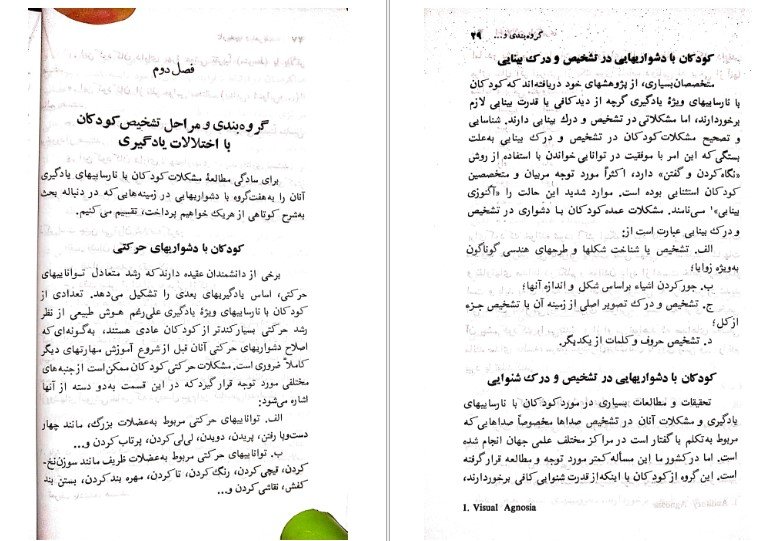 فصل دوم
گروه‌بندی و مراحل تشخیص کودکان
با اختلالات یادگیری
برای سادگی مطالعهٔ مشکلات کودکان با نارساییهای یادگیری
آنان را به‌هفت‌گروه با دشواریهایی در زمینه‌هایی‌که در دنباله بحث
به‌شرح کوتاهی از هریک خواهیم پرداخت، تقسیم می‌کنیم.
کودکان با دشواریهای حرکتی
برخی از دانشمندان عقیده دارند که رشد متعادل تواناییهای
حرکتی، اساس یادگیریهای بعدی را تشکیل می‌دهد. تعدادی از
کودکان با نارساییهای ویژهٔ یادگیری علی‌رغم هوش طبیعی از نظر
رشد حرکتی بسیار کندتر از کودکان عادی هستند، به‌گونه‌ای‌که
اصلاح دشواریهای حرکتی آنان قبل از شروع آموزش مهارتهای دیگر
کاملاً ضروری است. مشکلات حرکتی کودکان ممکن است از جنبه‌های
مختلفی مورد توجه قرار گیرد که در این قسمت به‌دو دسته از آنها
اشاره می‌شود:
الف. تواناییهای حرکتی مربوط به‌عضلات بزرگ، مانند چهار
دست‌وپا رفتن، پریدن، دویدن، لی‌لی کردن، پرتاب کردن و...
ب. تواناییهای حرکتی مربوط به‌عضلات ظریف مانند سوزن‌نخ-
کردن، قیچی کردن، رنگ کردن، تا کردن، مهره بند کردن، بستن بند
کفش، نقاشی کردن و...
گروه‌بندی و... ۲۹
کودکان با دشواریهایی در تشخیص و درک بینایی
متخصصان‌بسیاری، از پژوهشهای خود دریافته‌اند که کودکان
با نارساییهای ویژهٔ یادگیری گرچه از دید کافی یا قدرت بینایی لازم
برخوردارند، اما مشکلاتی در تشخیص و درک بینایی دارند. شناسایی
و تصحیح مشکلات کودکان در تشخیص و درک بینایی به‌علت
بستگی که این امر با موفقیت در توانایی خواندن با استفاده از روش
«نگاه‌کردن و گفتن» دارد، اکثراً مورد توجه مربیان و متخصصین
کودکان استثنایی بوده است. موارد شدید این حالت را «آگنوزی
بینایی»¹ می‌نامند. مشکلات عمده کودکان با دشواری در تشخیص
و درک بینایی عبارت است از:
الف. تشخیص یا شناخت شکلها و طرحهای هندسی گوناگون
به‌ویژه زوایا؛
ب. جور کردن اشیاء براساس شکل و اندازه آنها؛
ج. تشخیص و درک تصویر اصلی از زمینه آن یا تشخیص جزء
از کل؛
د. تشخیص حروف و کلمات از یکدیگر.
کودکان با دشواریهایی در تشخیص و درک شنوایی
تحقیقات و مطالعات بسیاری در مورد کودکان با نارساییهای
یادگیری و مشکلات آنان در تشخیص صداها مخصوصاً صداهایی که
مربوط به‌تکلم یا گفتار است در مراکز مختلف علمی جهان انجام شده
است. اما در کشور ما این مسأله کمتر مورد توجه و مطالعه قرار گرفته
است. این گروه از کودکان با اینکه از قدرت شنوایی کافی برخوردارند،
1. Visual Agnosia